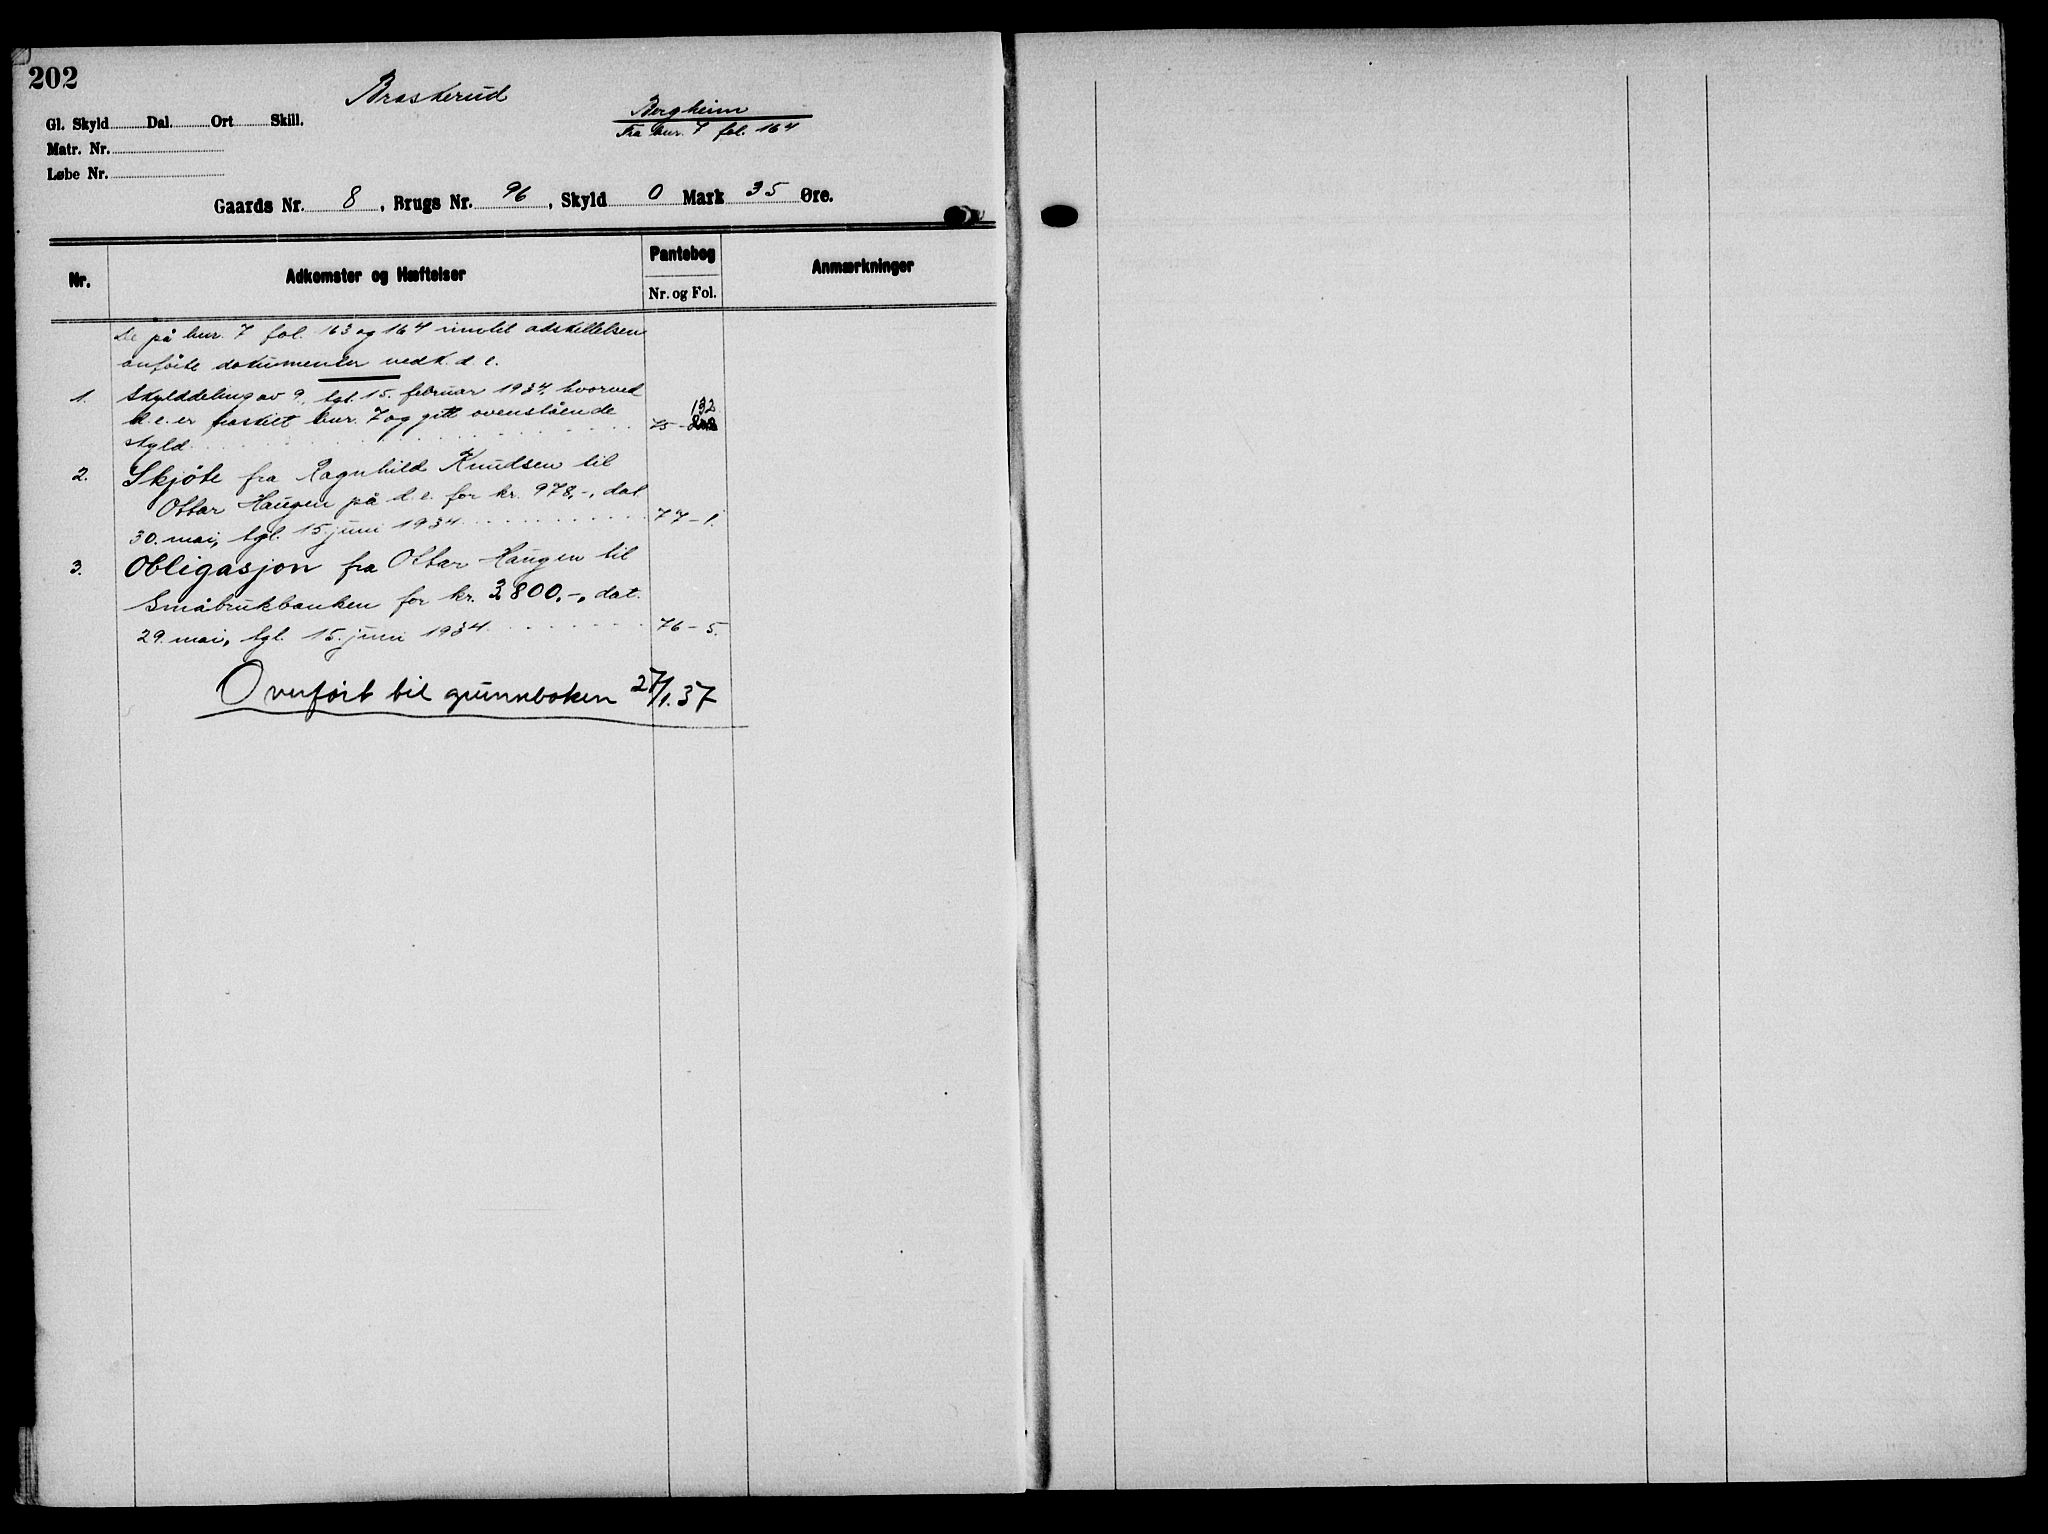 202
Braskerud
Bergheim
Fra bnr. 7 fol. 164
Gl. Skyld Dal. Ort Skill.
Matr. Nr.
Løbe Nr.
Gaards Nr. 8, Brugs Nr. 96, Skyld 0 Mark 35 Øre.
Nr. Adkomster og Hæftelser Pantebog Anmærkninger
Nr. og Fol.
De på bnr. 7 fol. 163 og 164 inntil adskillelsen
anførte dokumenter vedk. d. e.
1. Skylddeling av 9., tgl. 15. februar 1934, hvorved
d. e. er fraskilt bnr. 7 og gitt ovenstående 132
skyld 75 -
2. Skjøte fra Ragnhild Knudsen til
Ottar Haugen på d. e. for kr. 978,-, dat.
30. mai, tgl. 15. juni 1934 77 - 1.
3. Obligasjon fra Ottar Haugen til
Småbrukbanken for kr. 3800,-, dat.
29. mai, tgl. 15. juni 1934 76 - 5.
Overført til grunnboken 27/1.37